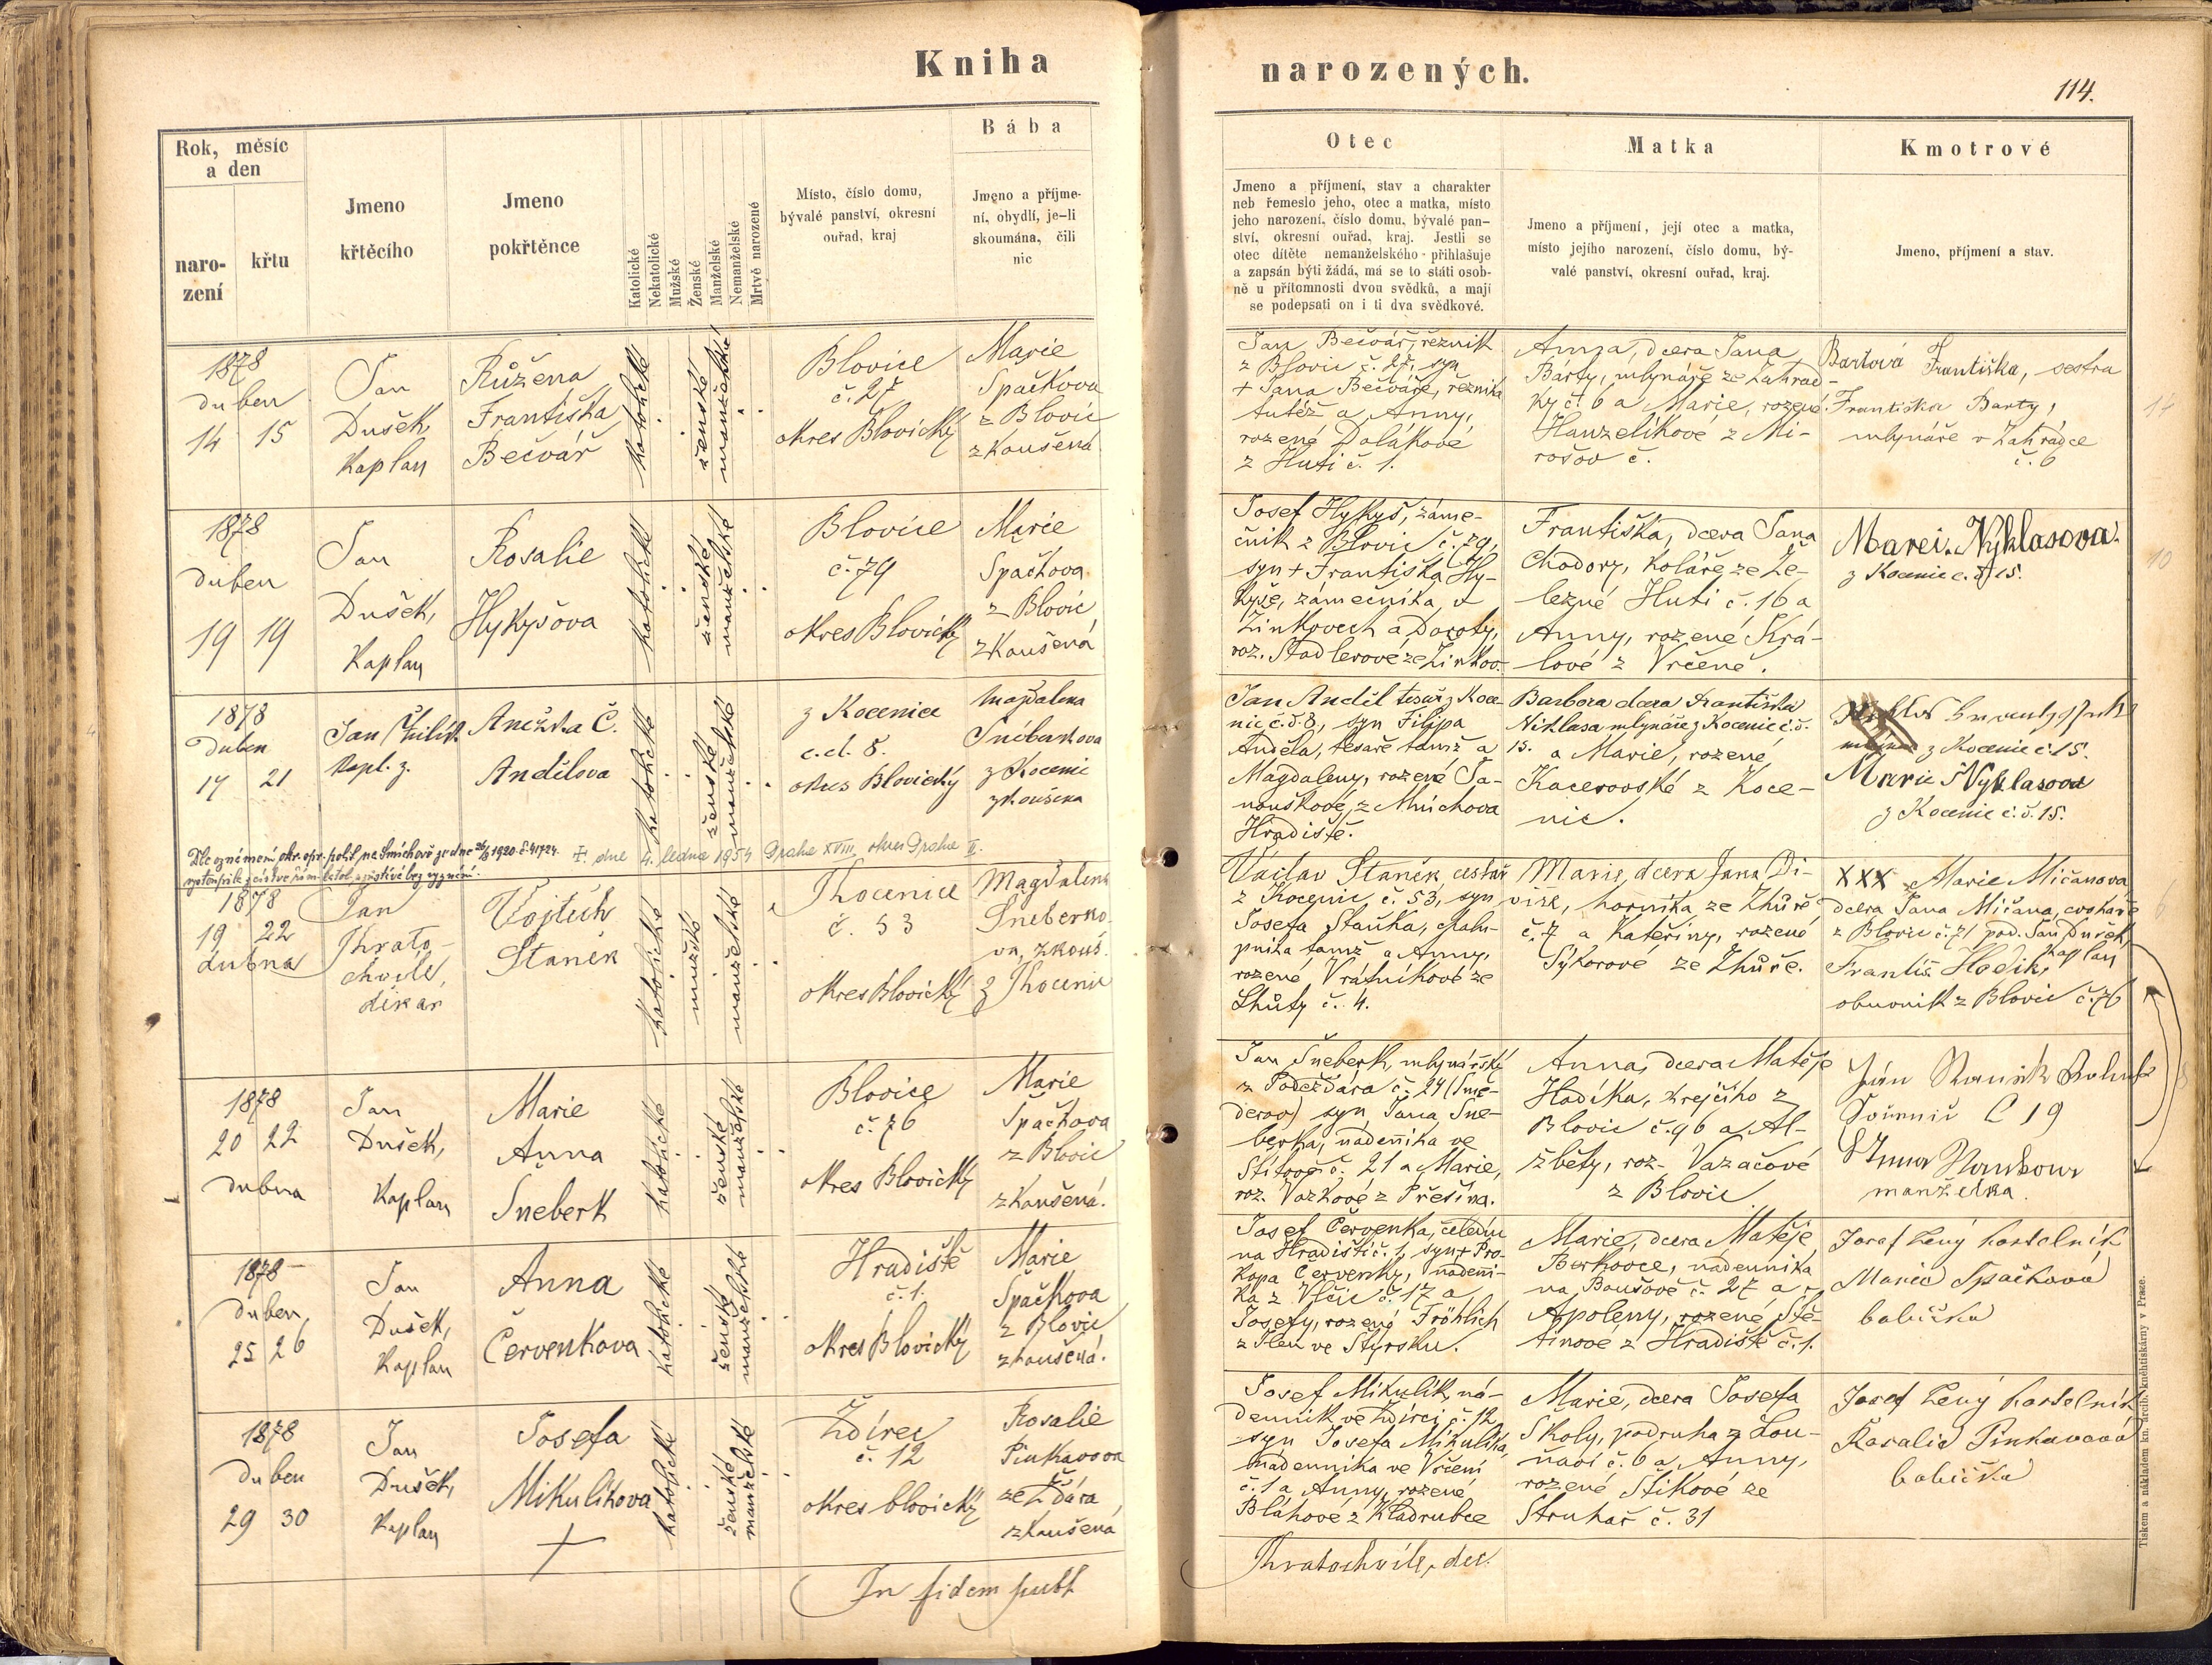 Kniha
narozených.
114.
Rok, měsíc
a den
naro-
zení
křtu
Jmeno
křtěcího
Jmeno
pokřtěnce
Katolické
Nekatolické
Mužské
Ženské
Manželské
Nemanželské
Mrtvě narozené
Místo, číslo domu,
bývalé panství, okresní
ouřad, kraj
Bába
Jmeno a příjme-
ní, obydlí, je-li
skoumána, čili
nic
Otec
Jmeno a příjmení, stav a charakter
neb řemeslo jeho, otec a matka, místo
jeho narození, číslo domu, bývalé pan-
ství, okresní ouřad, kraj. Jestli se
otec dítěte nemanželského přihlašuje
a zapsán býti žádá, má se to státi osob-
ně u přítomnosti dvou svědků, a mají
se podepsati on i ti dva svědkové.
Matka
Jmeno a příjmení, její otec a matka,
místo jejího narození, číslo domu, bý-
valé panství, okresní ouřad, kraj.
Kmotrové
Jmeno, příjmení a stav.
1878
duben
14 15
Jan
Dušek
Kaplan
Růžena
Františka
Bečvář
katolické
ženské
manželské
Blovice
č. 27
okres Blovický
Marie
Špačkova
z Blovic
zkoušená
Jan Bečvář, řezník
z Blovic č. 27, syn
+ Jana Bečváře, řezníka
tutéž a Anny,
rozené Dolákové
z Huti č. 1.
Anna, dcera Jana
Barty, mlynáře ze Zahrád-
ky č. 6 a Marie, rozené
Hanzelíkové z Mi-
rošov č.
Bartová Františka, sestra
Františka Barty,
mlynáře v Zahrádce
č. 6
1878
duben
19 19
Jan
Dušek,
Kaplan
Rosalie
Hykyšova
katolické
ženské
manželské
Blovice
č. 79
okres Blovický
Marie
Špačkova
z Blovic
zkoušená
Josef Hykyš, záme-
čník z Blovic č. 79,
syn + Františka Hy-
kyše, zámečníka v
Žinkovech a Doroty,
roz. Stadlerové ze Žinkov.
Františka, dcera Jana
Chodory, koláře ze Že-
lezné Huti č. 16 a
Anny, rozené Krá-
lové z Vrčeně.
Marei. Nyklasova.
z Kocenic č. d 15.
1878
Duben
17 21
Jan Čžilík
Kapl. z.
Anežka Č.
Andělova
katolické
ženské
manželské
z Kocenice
č. d. 8.
okres Blovický
Magdalena
Šneberkova
z Kocenic
zkoušena
Jan Anděl tesař z Koce-
nic č. d. 8, syn Filipa
Anděla, tesaře tamž a
Magdaleny, rozené Ja-
nouškové z Mníchova
Hradiště.
Barbora dcera Františka
Niklasa mlynáře z Kocenic č. d.
15. a Marie, rozené
Kacerovské z Koce-
nic.
z Kocenic č. 15.
Marie Nyklasova
z Kocenic č. d. 15.
Dle oznámení okr. spr. polit. na Smíchově ze dne 26/8 1920 č. 41724
vystoupila z církve řím. katol. a zůstává bez vyznání.
†. dne 4. ledna 1954 Praha XVIII, okres Praha II.
1878
19 22
dubna
Jan
Khrato-
chvile,
děkan
Vojtěch
Staněk
katolické
mužské
manželské
Khocenice
č. 53
okres Blovický
Magdalena
Šneberko-
va, zkouš.
z Khocenic
Václav Staněk cestář
z Kocenic, č. 53, syn
Josefa Staňka, chalu-
pníka tamž a Anny,
rozené Vrátníkové ze
Lhůty č. 4.
Marie, dcera Jana Di-
više, horníka ze Zhůře
č. 7 a Kateřiny, rozené
Sýkorové ze Zhůře.
XXX Marie Mičanova
dcera Jana Mičana, cvokaře
z Blovic č. 71 pod. Jan Dušek
Kaplan
Františ. Hodík,
obuvník z Blovic č. 76
1878
20 22
dubna
Jan
Dušek,
Kaplan
Marie
Anna
Šneberk
katolické
ženské
manželské
Blovice
č. 76
okres Blovický
Marie
Špačkova
z Blovic
zkoušená.
Jan Šneberk, mlynářský
z Podežďára č. 24 (Smě-
derov) syn Jana Šne-
berka, nádenníka ve
Štítově č. 21 a Marie,
roz. Vozkové z Přešína.
Anna, dcera Matěje
Hodíka, krejčího z
Blovic č. 96 a Al-
žběty, roz. Vazačové
z Blovic
manželka.
1878
Duben
25 26
Jan
Dušek,
Kaplan
Anna
Červenkova
katolické
ženské
manželské
Hradiště
č. 1.
okres Blovický
Marie
Špačkova
z Blovic
zkoušená.
Josef Červenka, čeledín
na Hradišti č. 1, syn + Pro-
kopa Červenky, nádenní-
ka z Vlčic č. 17 a
Josefy, rozené Fröhlich
z Ilen ve Štyrsku.
Marie, dcera Matěje
Berkovce, nádenníka
na Boušově č. 27 a
Apoleny, rozené Ště-
tinové z Hradiště č. 1.
Josef Lený kostelník
Marie Špačková
babička
1878
Duben
29 30
Jan
Dušek,
Kaplan
Josefa
Mikulíkova
katolické
ženské
manželské
Ždírec
č. 12
okres blovický
Rosalie
Pinkavova
ze Ždára,
zkoušená
Josef Mikulík, ná-
denník ve Ždírci č. 12,
syn Josefa Mikulíka,
nádenníka ve Vrčeni
č. 1 a Anny, rozené
Bláhové z Kladrubce
Marie, dcera Josefa
Školy, podruha z Lou-
ňaví č. 6 a Anny,
rozené Štikové ze
Struhař č. 31
Josef Lený kostelník
Rosalie Pinkavová
babička
In fidem publ
Khratochvile, děk.
Tiskem a nákladem kn. arcib. knihtiskárny v Praze.